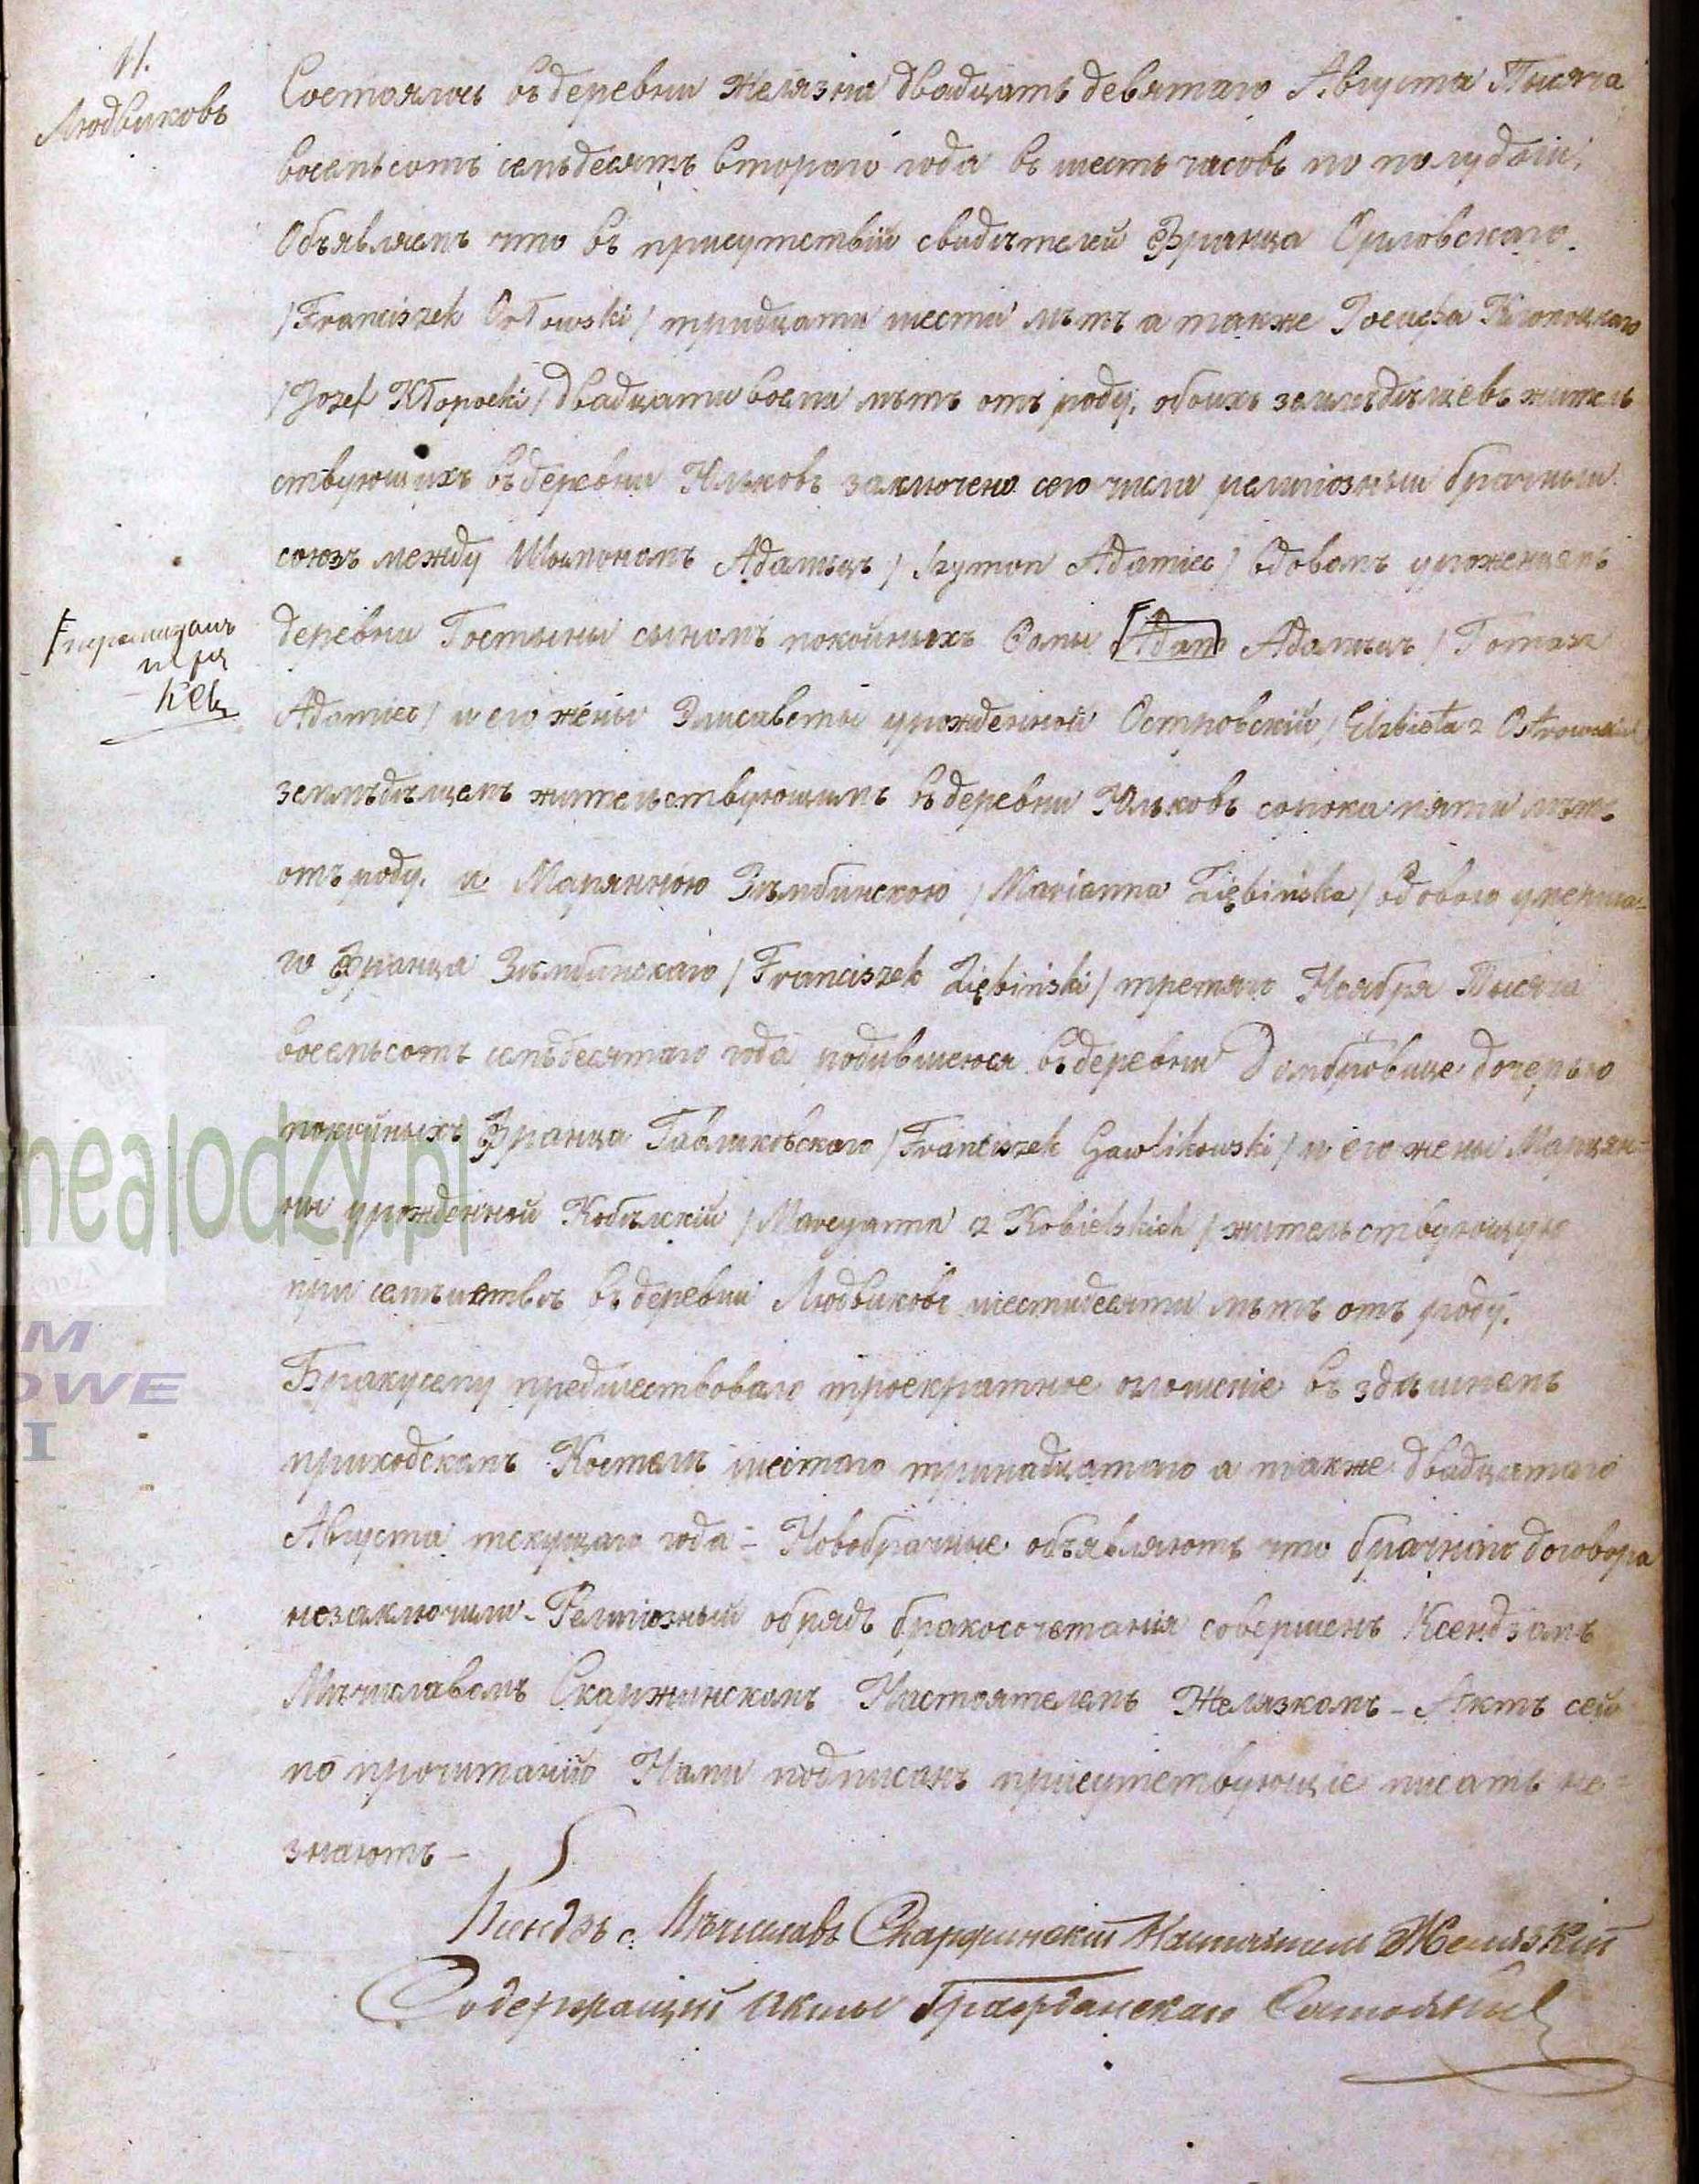 11.
Людвиковъ
Состоялось въ деревни Желязна двадцать девятаго Августа Тысяча
восемьсотъ семьдесятъ втораго года въ шесть часовъ по полудни,
Объявляемъ что въ присутствіи свидѣтелей Франца Орловскаго
/Franciszek Orłowski/ тридцати шести лѣтъ а также Іосифа Клопоцкаго
/Jozef Kłopocki/ двадцати восми лѣтъ отъ роду, обоихъ земледѣльцевъ житель
ствующихъ въ деревни Юльковъ заключено сего числа религіозный брачный
союзъ между Шымономъ Адамецъ /Szymon Adamiec/ вдовемъ уроженцемъ
деревни Гостыны сыномъ покойныхъ Фомы Адам Адамецъ /Tomasz
Adamiec/ и его жены Элисаветы урожденной Островскій /Elzbieta z Ostrowskich
земледѣльцемъ жительствующимъ въ деревни Юльковъ сорока пяти лѣтъ
отъ роду, и Марянною Зѣмбинскою /Marianna Ziębińska/ вдовою умерша=
го Франца Зѣмбинскаго /Franciszek Ziębiński/ третяго Ноября Тысяча
восемьсотъ семьдесятаго года родившеюся въ деревни Домбровице дочерью
покойныхъ Франца Гавликовскаго /Franciszek Gawlikowski/ и его жены Марцян=
ны урожденной Кобѣлскій /Marcyanna z Kobielskich/ жительствующую
при семѣйствѣ въ деревни Людвиковъ шестидесяти лѣтъ отъ роду.
Браку сему предшествовало троекратное оглошеніе въ здѣшнемъ
приходскомъ Костелѣ шестаго тринадцатаго а также двадцатаго
Августа текущаго года – Новобрачные объявляютъ что брачнаго договора
незаключили – Религіозный обрядъ бракосочетанія совершенъ Ксендзомъ
Мѣчиславомъ Скаржинскомъ Настоятелемъ Желязкомъ – Актъ сей
по прочитаніи Нами подписанъ присутствующіе писать не=
знаютъ –
Ксендзъ Мѣчиславъ Скаржинскій Настоятель Желязкій
Содержащій Акты Гражданскаго Состоянія
nealodzy.pl
M
OWE
I